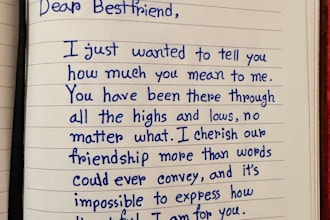 Dear Bestfriend,
I just wanted to tell you
how much you mean to me.
You have been there through
all the highs and lows, no
matter what. I cherish our
friendship more than words
could ever convey, and it's
impossible to express how
I am for you.